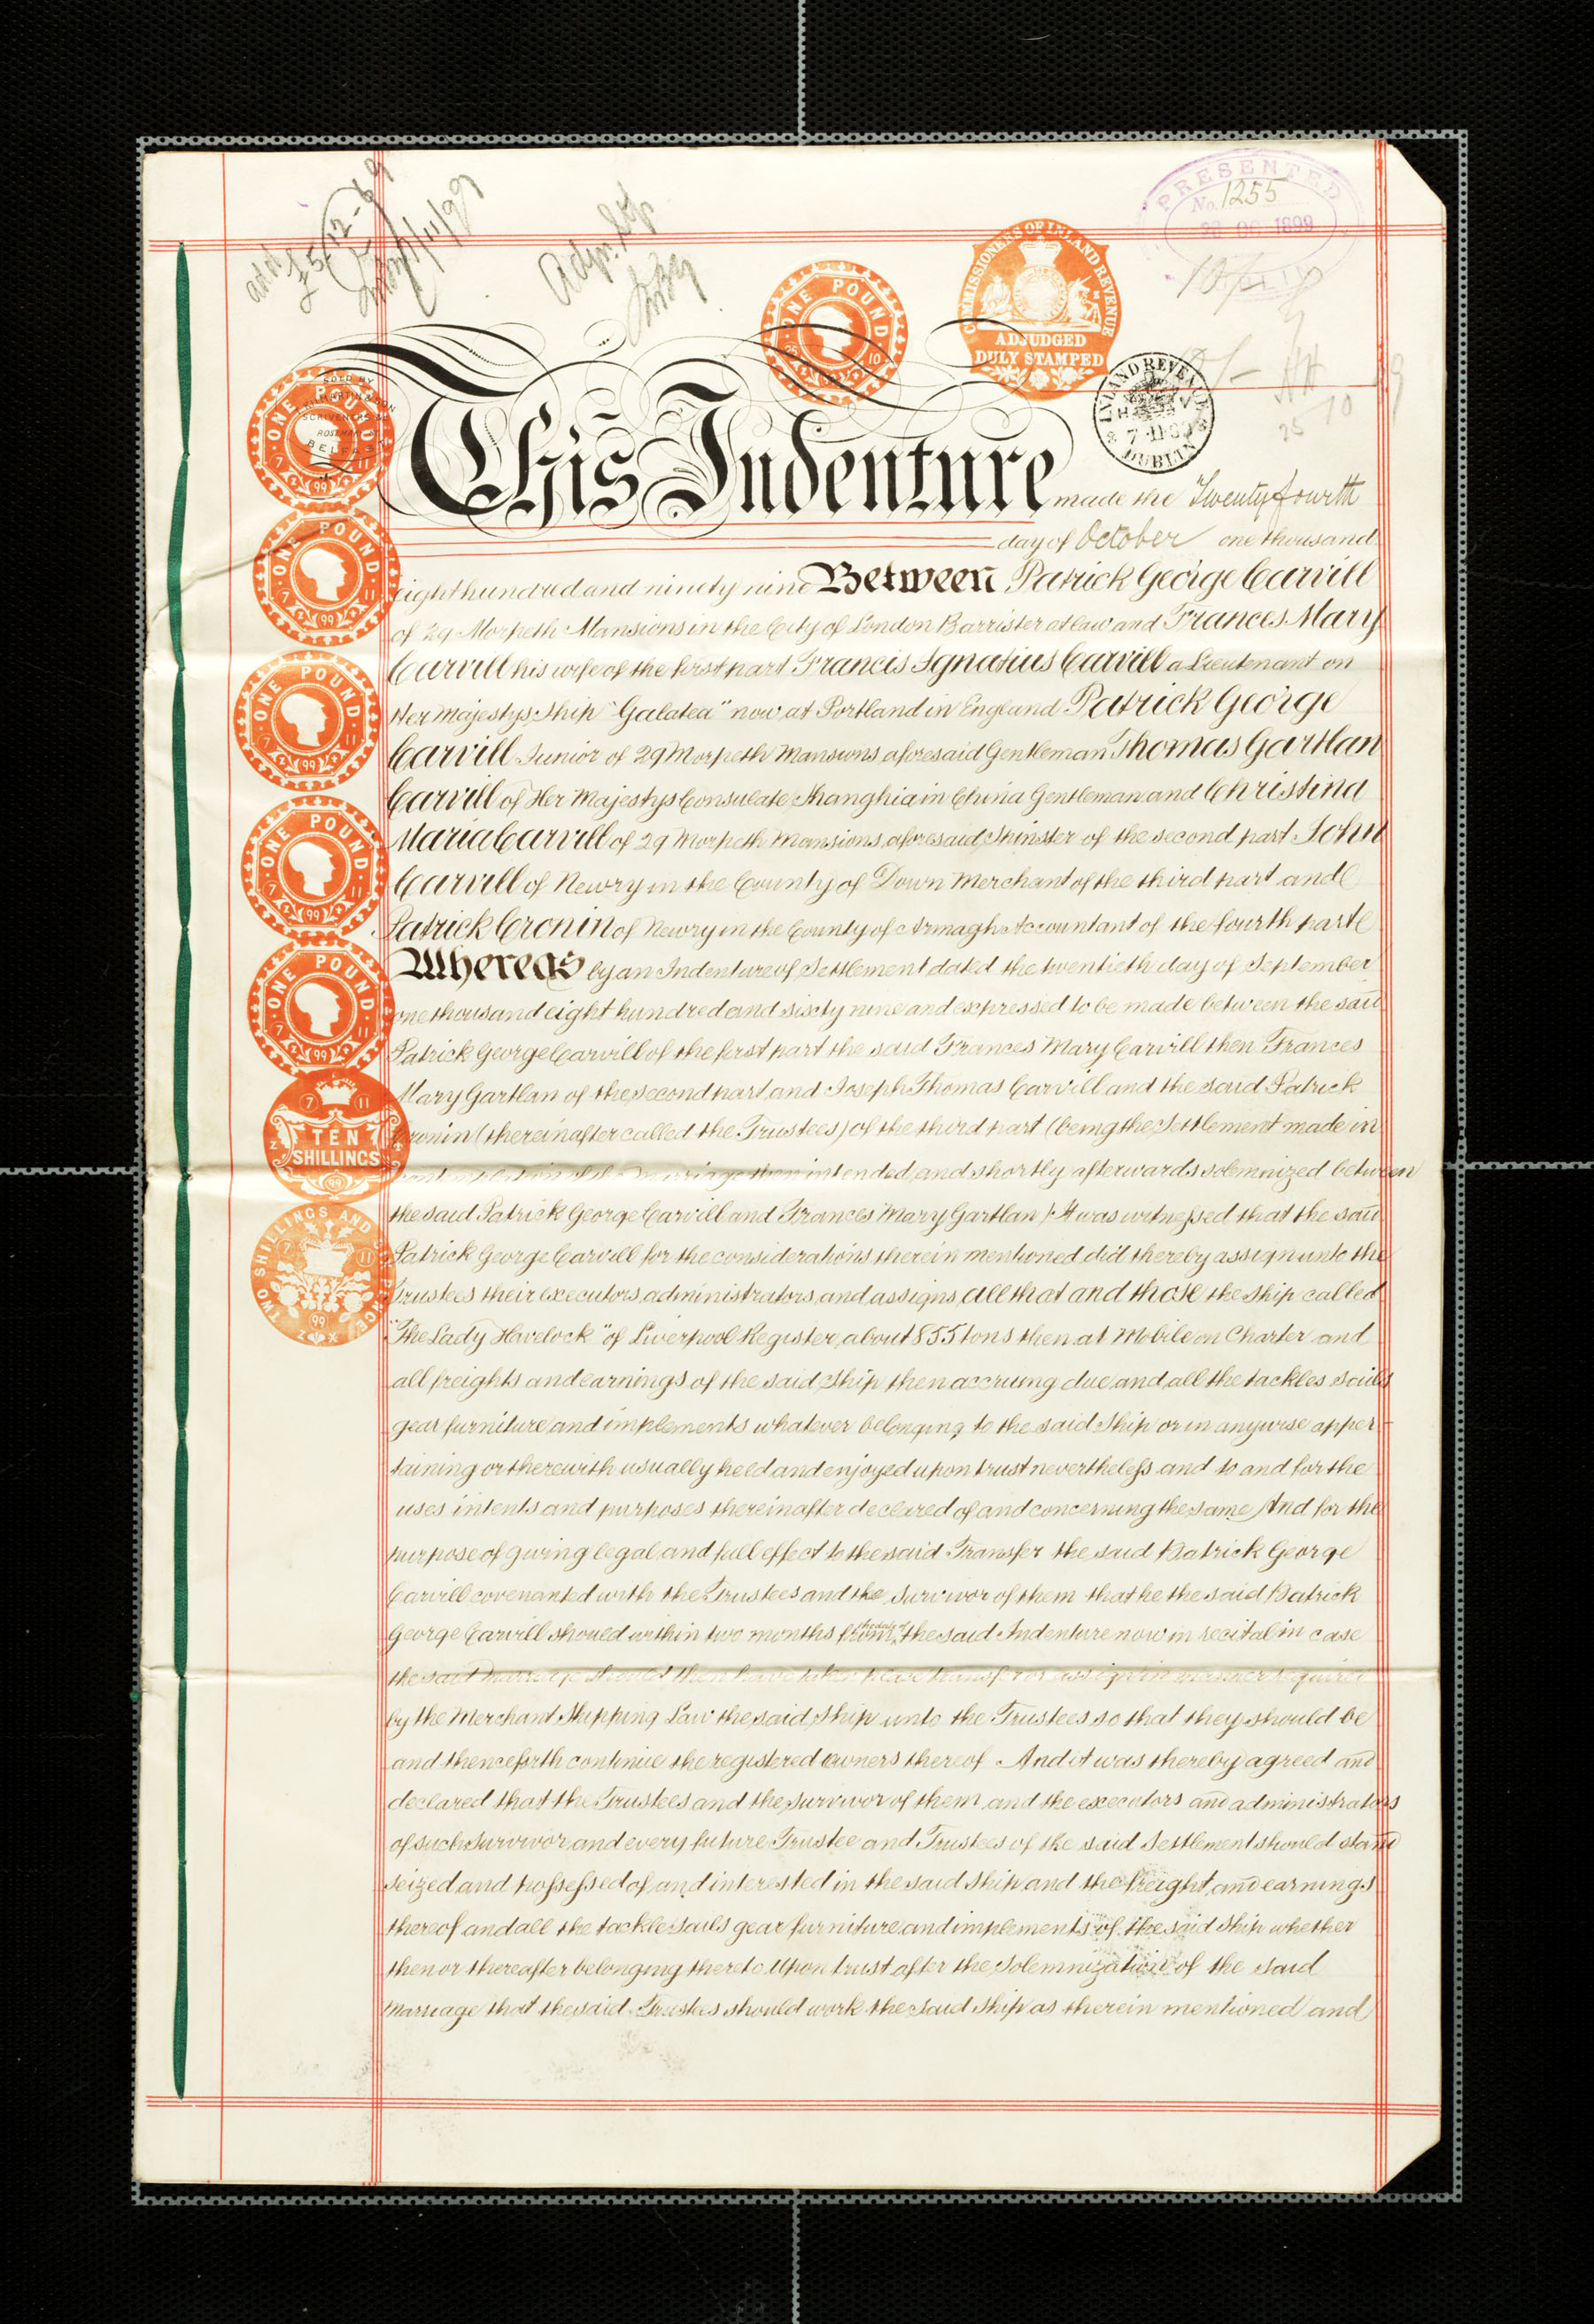 PRESENTED
No. 1255
1899
COMMISSIONERS OF INLAND REVENUE
ADJUDGED
DULY STAMPED
ONE POUND
25 10
INLAND REVENUE
7 11 99
DUBLIN
SOLD BY
MARTIN & SON
SCRIVENERS
ROSEMARY ST
BELFAST
ONE POUND
7 11
99
This Indenture made the Twentyfourth
day of October one thousand
eight hundred and ninety nine Between Patrick George Carvill
of 29 Morpeth Mansions in the City of London Barrister at law and Frances Mary
Carvill his wife of the first part Francis Ignatius Carvill a Lieutenant on
Her Majestys Ship "Galatea" now at Portland in England Patrick George
Carvill Junior of 29 Morpeth Mansions aforesaid Gentleman Thomas Gartlan
Carvill of Her Majestys Consulate Shanghia in China Gentleman and Christina
Maria Carvill of 29 Morpeth Mansions aforesaid Spinster of the second part John
Carvill of Newry in the County of Down Merchant of the third part and
Patrick Cronin of Newry in the County of Armagh Accountant of the fourth part
Whereas by an Indenture of Settlement dated the twentieth day of September
one thousand eight hundred and sixty nine and expressed to be made between the said
Patrick George Carvill of the first part the said Frances Mary Carvill then Frances
Mary Gartlan of the second part and Joseph Thomas Carvill and the said Patrick
Cronin (thereinafter called the Trustees) of the third part (being the Settlement made in
contemplation of the marriage then intended and shortly afterwards solemnized between
the said Patrick George Carvill and Frances Mary Gartlan) It was witnessed that the said
Patrick George Carvill for the considerations therein mentioned did thereby assign unto the
Trustees their executors administrators and assigns all that and those the ship called
"The Lady Havelock" of Liverpool Register about 855 tons then at Mobile on Charter and
all freights and earnings of the said Ship then accruing due and all the tackles sails
gear furniture and implements whatever belonging to the said Ship or in anywise apper-
taining or therewith usually held and enjoyed upon trust nevertheless and to and for the
uses intents and purposes thereinafter declared of and concerning the same And for the
purpose of giving legal and full effect to the said Transfer the said Patrick George
Carvill covenanted with the Trustees and the Survivor of them that he the said Patrick
George Carvill should within two months from the date of the said Indenture now in recital in case
the said marriage should then have taken place transfer or assign in manner required
by the Merchant Shipping Law the said Ship unto the Trustees so that they should be
and thenceforth continue the registered owners thereof And it was thereby agreed and
declared that the Trustees and the survivor of them and the executors and administrators
of such Survivor and every future Trustee and Trustees of the said Settlement should stand
seized and possessed of and interested in the said Ship and the freight and earnings
thereof and all the tackle sails gear furniture and implements of the said Ship whether
then or thereafter belonging thereto Upon trust after the solemnization of the said
Marriage that the said Trustees should work the said Ship as therein mentioned and
ONE POUND
7 11
99
ONE POUND
7 11
99
ONE POUND
7 11
99
ONE POUND
7 11
99
7 11
TEN
SHILLINGS
99
TWO SHILLINGS AND SIX PENCE
7 11
99